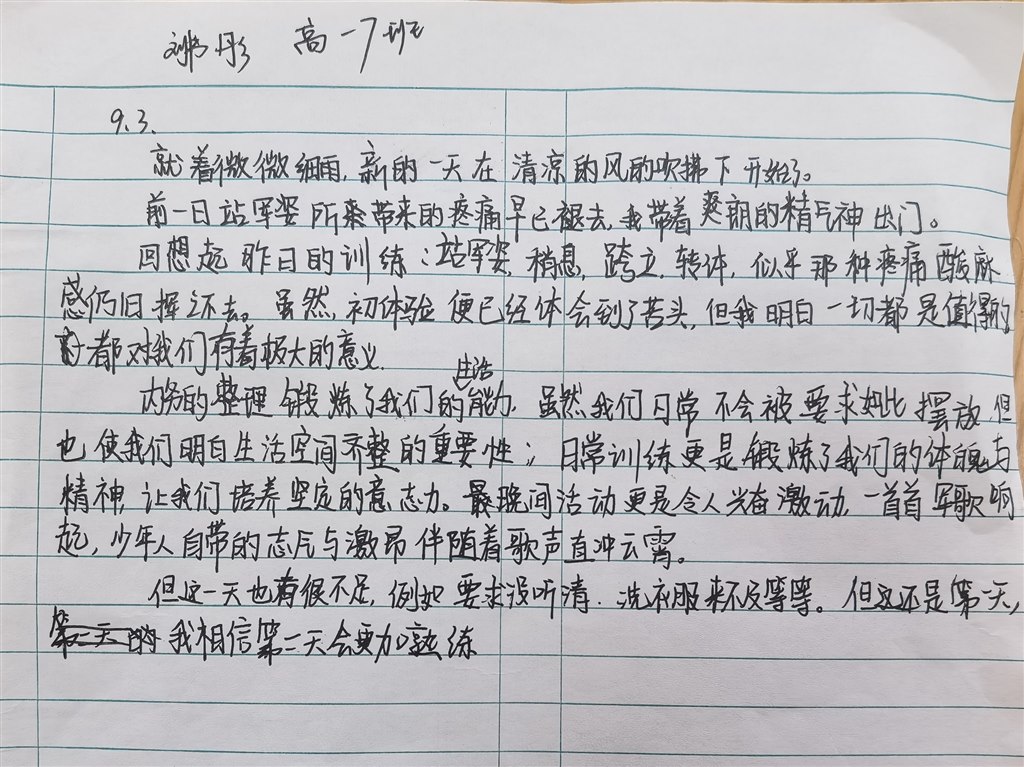 刘彤 高一7班
9.3.
就着微微细雨,新的一天在清凉的风的吹拂下开始了。
前一日站军姿所来带来的疼痛早已褪去,我带着爽朗的精气神出门。
回想起昨日的训练:站军姿,稍息,跨立,转体,似乎那种疼痛酸麻
感仍旧挥之不去。虽然,初体验便已经体会到了苦头,但我明白一切都是值得的
都对我们有着极大的意义.
内务的整理锻炼了我们的生活能力,虽然我们日常不会被要求如此摆放,但
也使我们明白生活空间齐整的重要性;日常训练更是锻炼了我们的体魄与
精神,让我们培养坚定的意志力。晚间活动更是令人兴奋激动,一首首军歌响
起,少年人自带的志气与激昂伴随着歌声直冲云霄。
但这一天也有很不足,例如要求没听清.洗衣服来不及等等。但这还是第一天,
我相信第二天会更加熟练